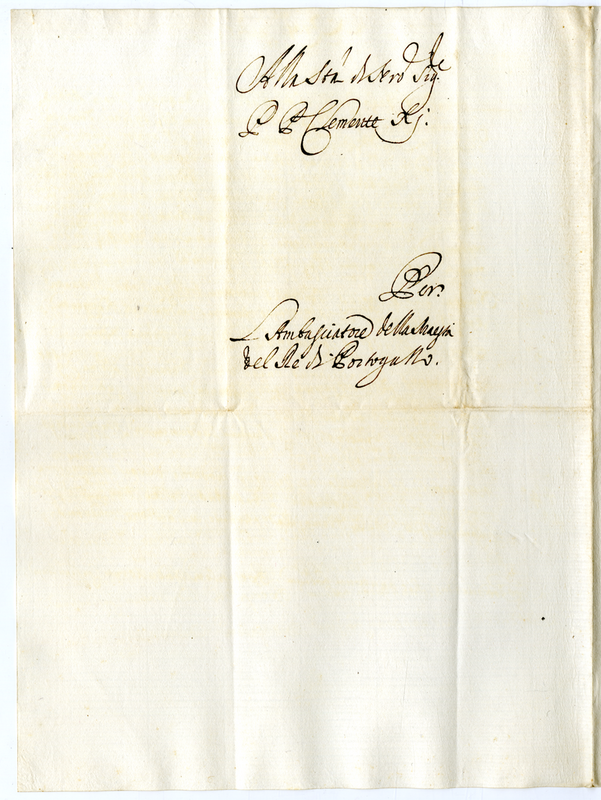 Alla Stà di Nro Sigre
P P Clemente Xj.
Per
L'Ambasciatore della Maestà
del Re di Portogallo.